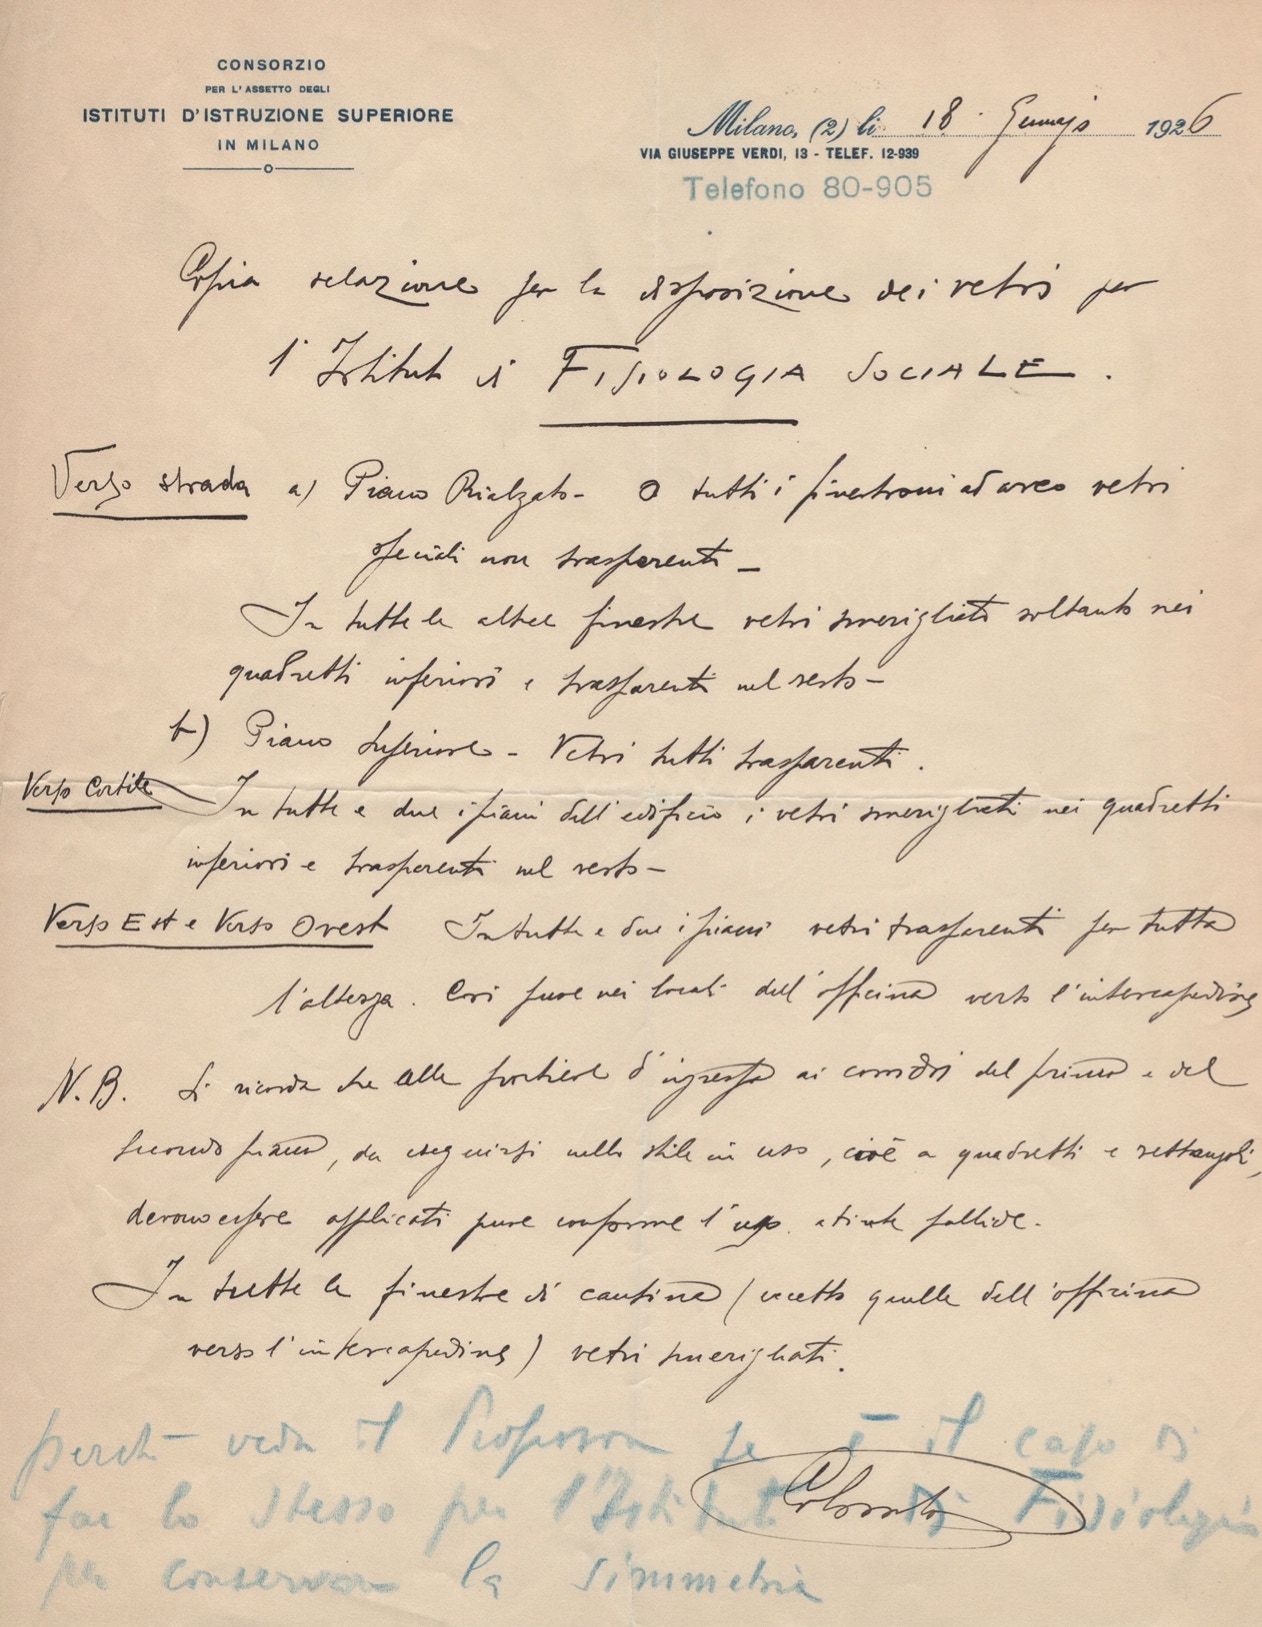 CONSORZIO
PER L'ASSETTO DEGLI
ISTITUTI D'ISTRUZIONE SUPERIORE
IN MILANO
Milano, (2) li 18 Gennajo 1926
VIA GIUSEPPE VERDI, 13 - TELEF. 12-939
Telefono 80-905
Copia relazione per la disposizione dei vetri per
l'Istituto di FISIOLOGIA SOCIALE.
Verso strada a) Piano Rialzato - a tutti i finestroni ad arco vetri
speciali non trasparenti -
In tutte le altre finestre vetri smerigliati soltanto nei
quadretti inferiori e trasparenti nel resto -
b) Piano Superiore - Vetri tutti trasparenti.
Verso Cortile In tutte e due i piani dell'edificio i vetri smerigliati nei quadretti
inferiori e trasparenti nel resto -
Verso Est e Verso Ovest In tutte e due i piani vetri trasparenti per tutta
l'altezza. Così pure nei locali dell'officina verso l'intercapedine
N.B. Si ricorda che alle portiere d'ingresso ai corridoi del primo e del
secondo piano, da eseguirsi nello stile in uso, cioè a quadretti e rettangoli,
devono essere applicati pure conforme l'uso a tinte pallide.
In tutte le finestre di cantina (eccetto quelle dell'officina
verso l'intercapedine) vetri smerigliati.
perchè veda il Professore se è il caso di
far lo stesso per l'Istituto di Fisiologia
per conservare la simmetria